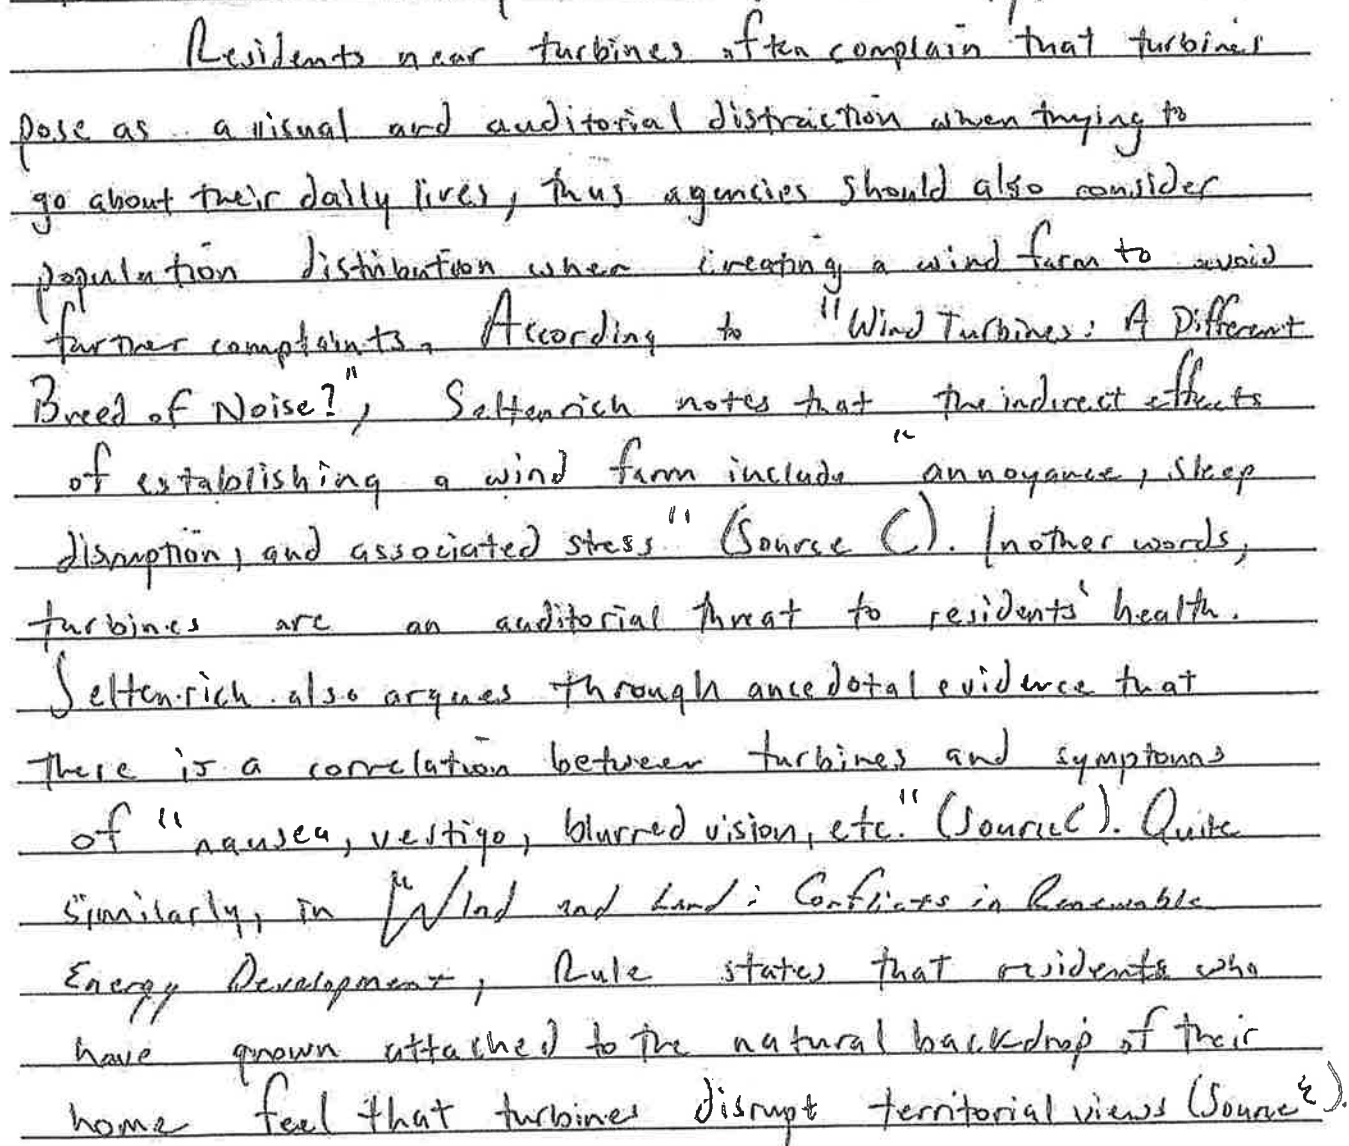 Residents near turbines often complain that turbines
pose as a visual and auditorial distraction when trying to
go about their daily lives, thus agencies should also consider
population distribution when creating a wind farm to avoid
further complaints. According to "Wind Turbines: A Different
Breed of Noise?", Seltenrich notes that the indirect effects
of establishing a wind farm include "annoyance, sleep
disruption, and associated stress" (Source C). In other words,
turbines are an auditorial threat to residents' health.
Seltenrich also argues through anecdotal evidence that
there is a correlation between turbines and symptoms
of "nausea, vertigo, blurred vision, etc." (Source C). Quite
similarly, in "Wind and Land: Conflicts in Renewable
Energy Development, Rule states that residents who
have grown attached to the natural backdrop of their
home feel that turbines disrupt territorial views (Source E).